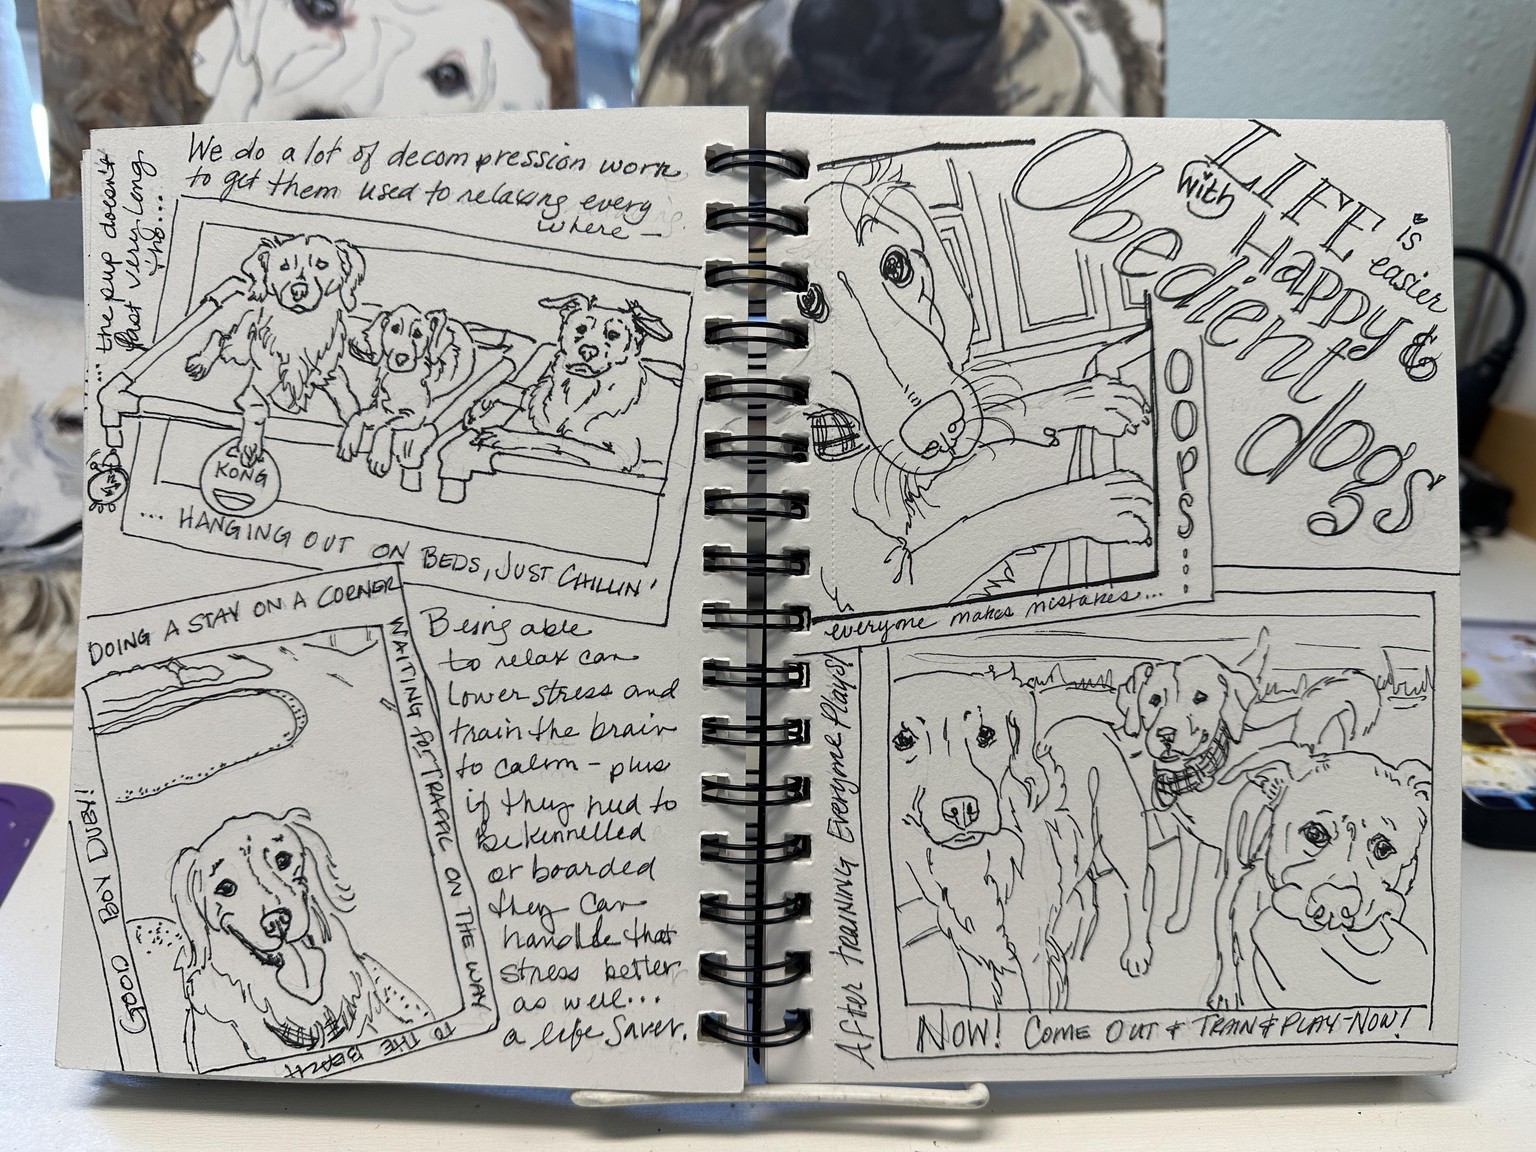 We do a lot of decompression work
to get them used to relaxing every
where —
... the pup doesn't
last very long
tho...
KONG
... HANGING OUT ON BEDS, JUST CHILLIN'
DOING A STAY ON A CORNER
WAITING for TRAFFIC ON THE WAY
TO THE BEACH
GOOD BOY DUEY!
Being able
to relax can
lower stress and
train the brain
to calm – plus
if they need to
be kennelled
or boarded
they can
handle that
stress better
as well...
a life saver.
LIFE is
with Happy & easier
Obedient
dogs
OOPS...
everyone makes mistakes...
After training Everyone Plays!
NOW! COME OUT & TRAIN & PLAY-NOW!